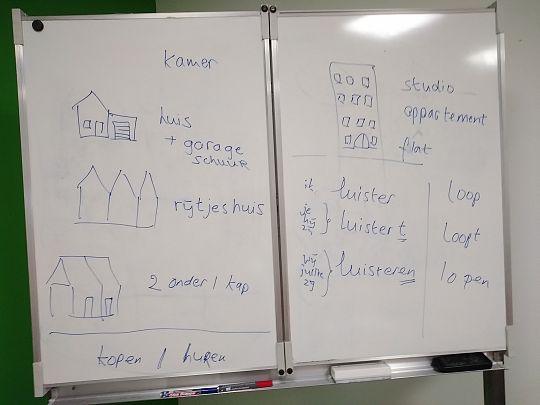 kamer
huis
+ garage
schuur
rijtjeshuis
2 onder 1 kap
kopen / huren
studio
appartement
flat
ik luister loop
je
hij
zij
luistert loopt
wij
jullie
zij
luisteren lopen